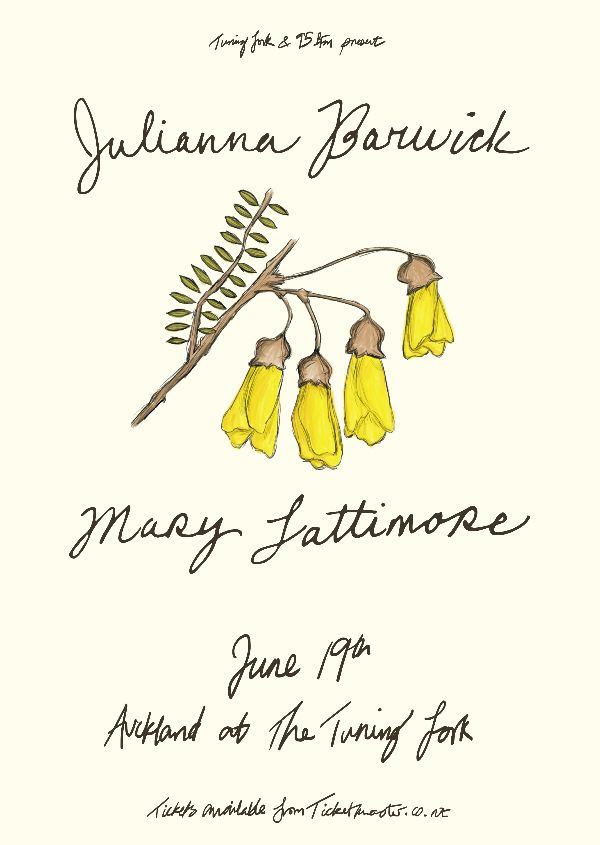 Tuning Fork & 95bFM present
Julianna Barwick
Mary Lattimore
June 19th
Auckland at The Tuning Fork
Tickets available from Ticketmaster.co.nz